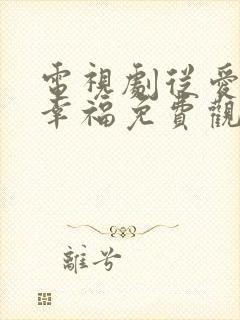 電視劇從愛
幸福免費觀
離兮